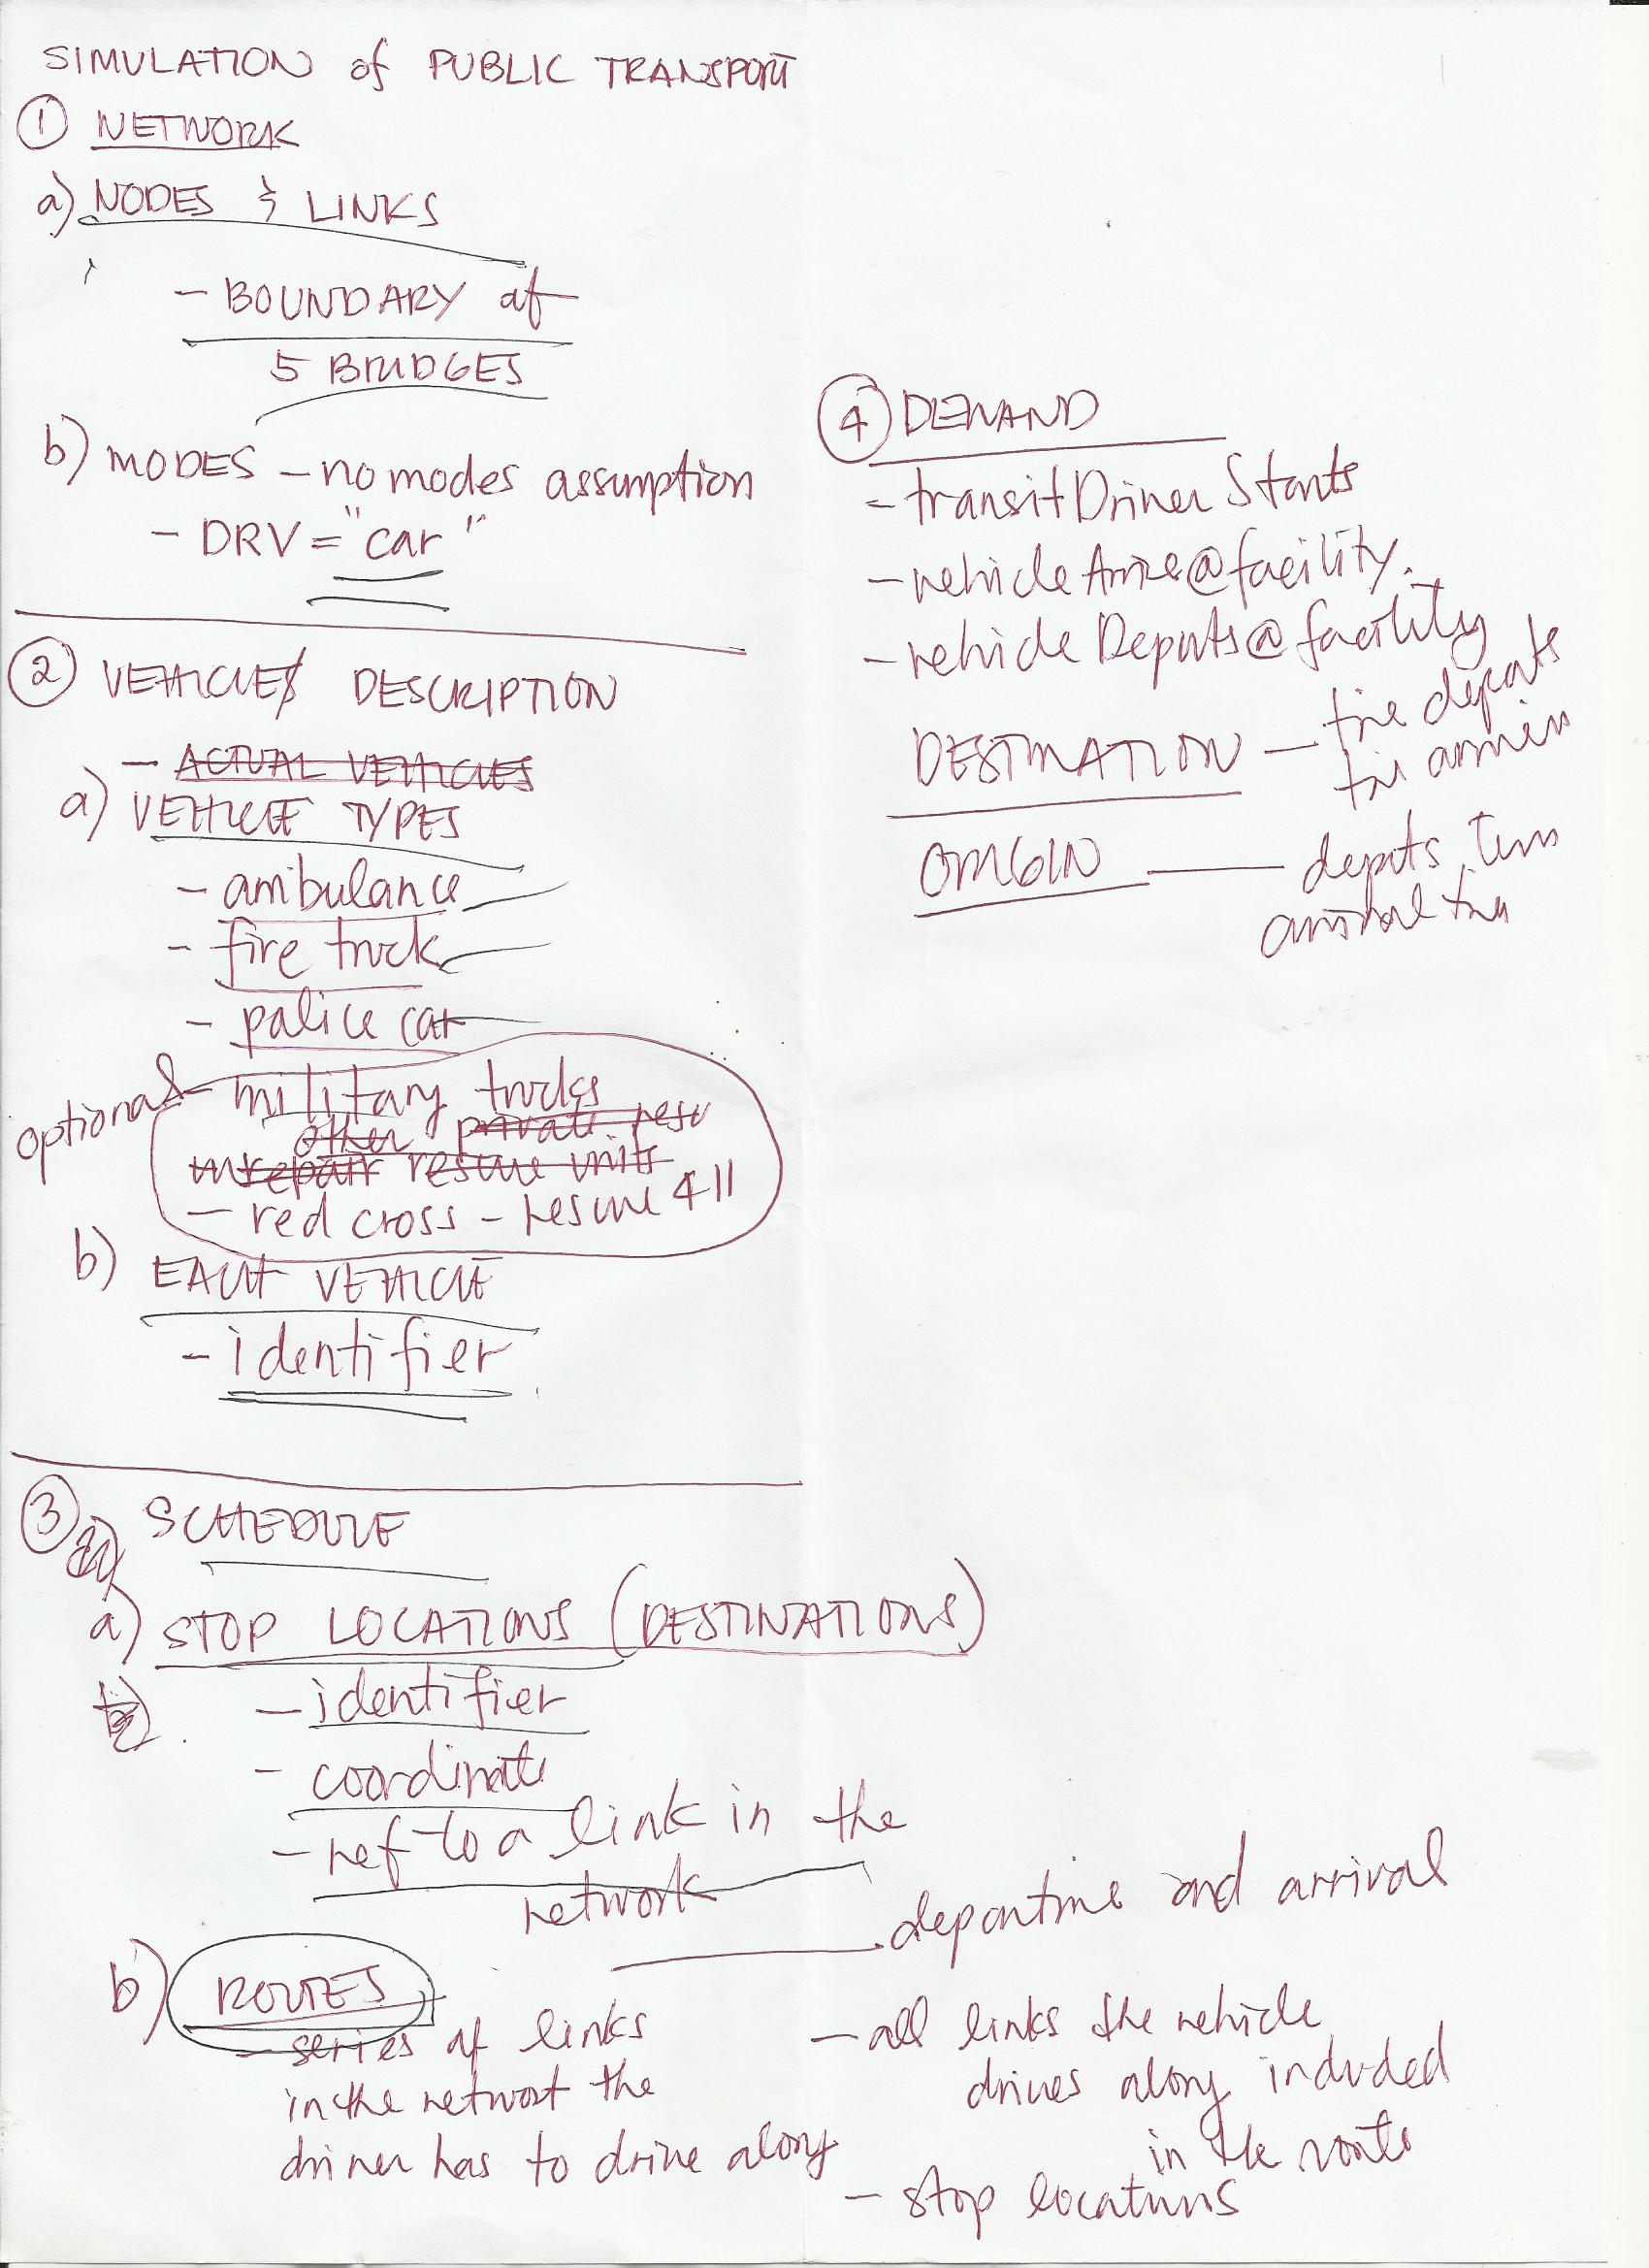 SIMULATION of PUBLIC TRANSPORT
① NETWORK
a) NODES & LINKS
- BOUNDARY of
5 BRIDGES
b) MODES - no modes assumption
- DRV = "car"
② VEHICLES DESCRIPTION
- ACTUAL VEHICLES
a) VEHICLE TYPES
- ambulance
- fire truck
- police car
optional - military trucks
other private resc
repair rescue units
- red cross - rescue 411
b) EACH VEHICLE
- identifier
③ SCHEDULE
a) STOP LOCATIONS (DESTINATIONS)
- identifier
- coordinate
- ref to a link in the
network
b) ROUTES
departime and arrival
- series of links
in the networt the
driver has to drive along
- all links the vehicle
drives along included
in the route
- stop locations
④ DEMAND
- transitDriverStarts
- vehicleArrive@facility.
- vehicleDeparts@facility
DESTINATION - time departs
time arrives
ORIGIN - departs time
arrival time